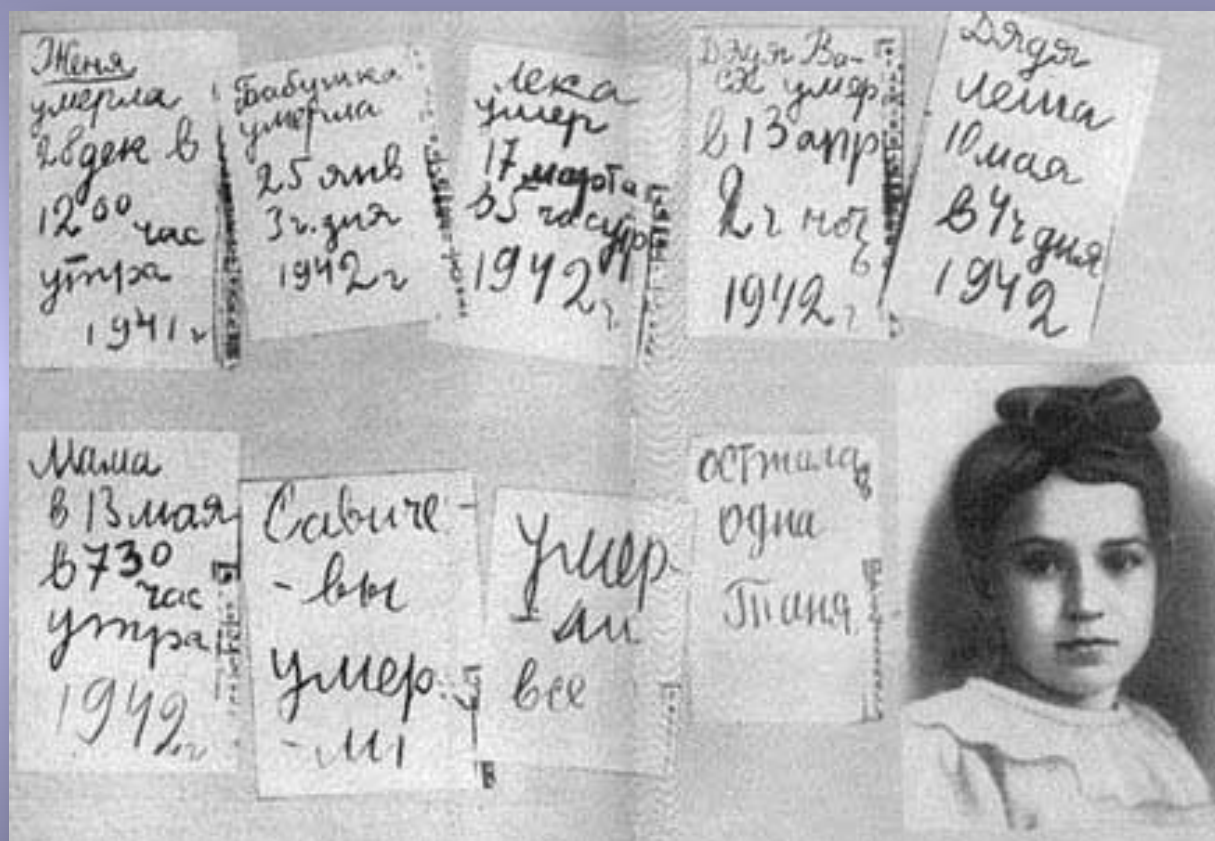 Женя
умерла
28 дек в
12 00 час
утра
1941 г
Бабушка
умерла
25 янв
3 ч. дня
1942 г
Лека
умер
17 марта
в 5 час утр
1942 г
Дядя Ва-
ся умер
в 13 апр
2 ч ночь
1942 г
Дядя
Леша
10 мая
в 4 ч дня
1942
Мама
в 13 мая
в 7 30
час
утра
1942 г
Савиче-
-вы
умер
-ли
умер-
-ли
все
осталась
одна
Таня